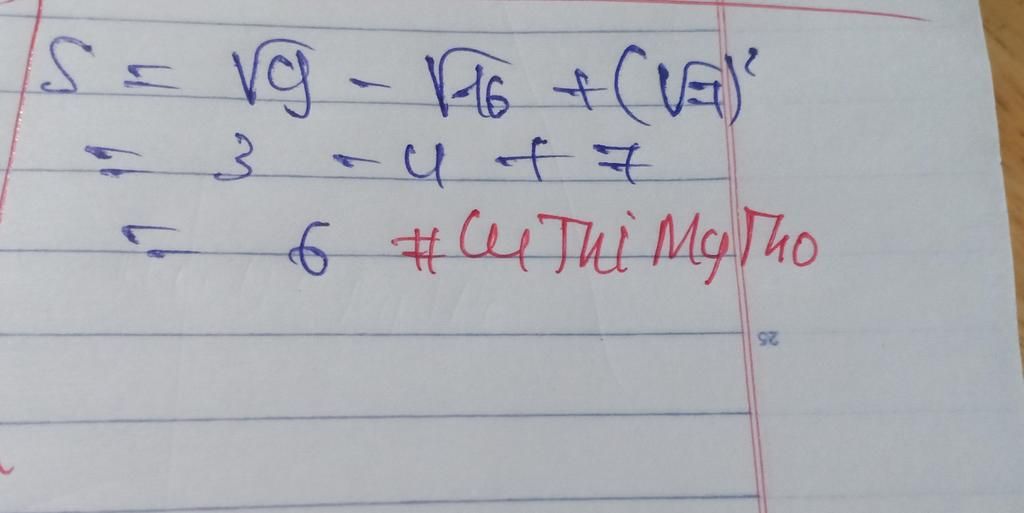 S = √9 - √16 + (√7)²
= 3 - 4 + 7
= 6 #CuThiMyTho
25